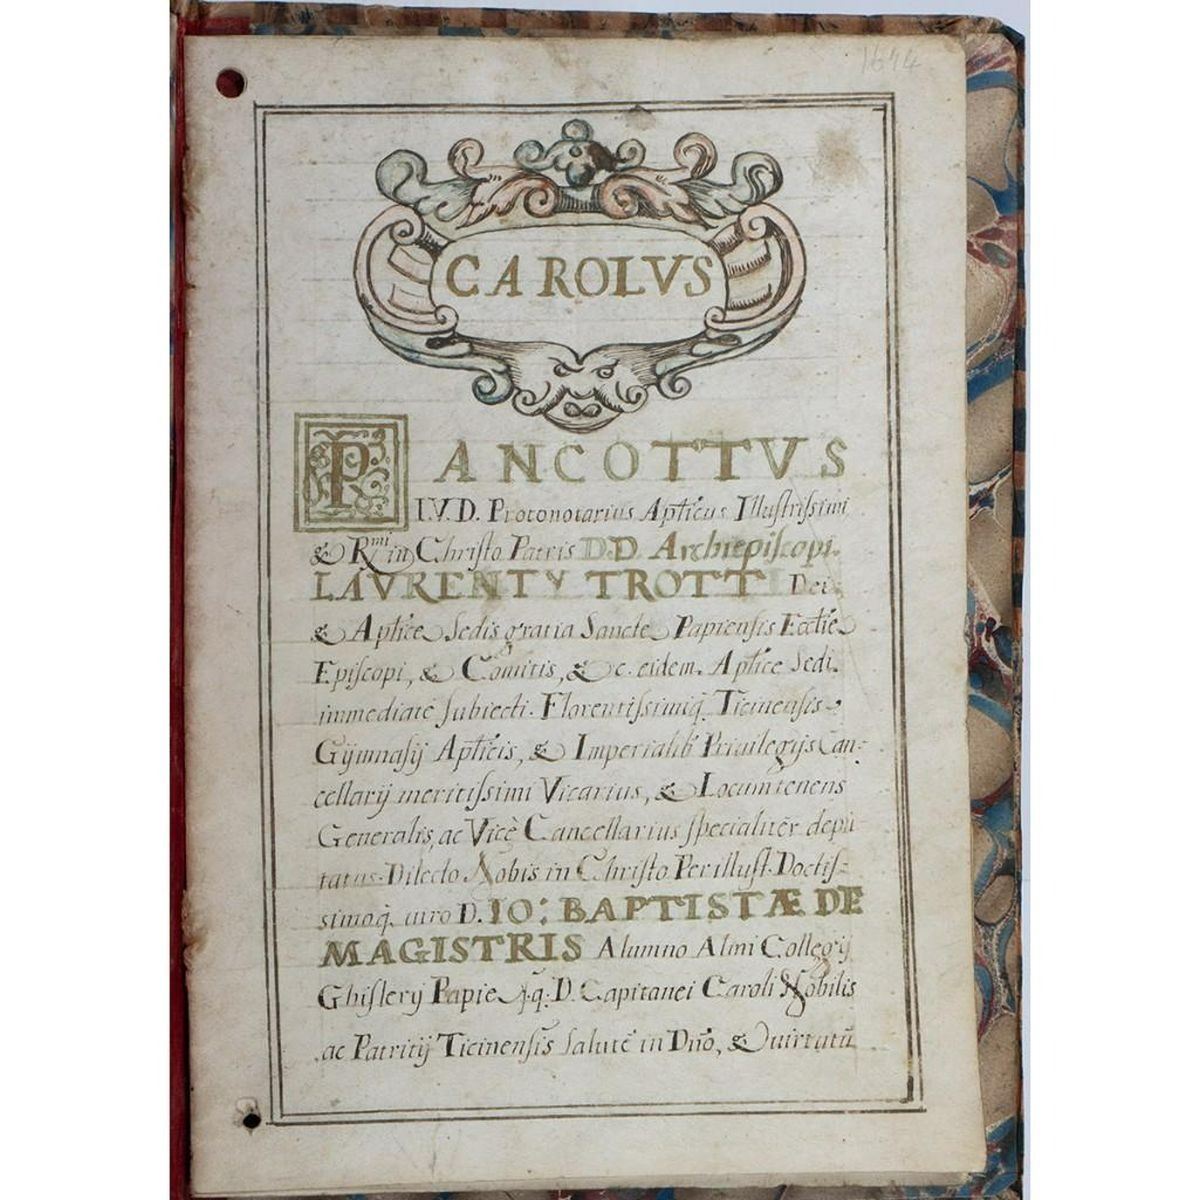 1674
CAROLVS
PANCOTTVS
I.V.D. Protonotarius Apticus Illustrissimi
& Rmi in Christo Patris D.D. Archiepiscopi
LAVRENTY TROTTI Dei
& Aptice Sedis gratia Sancte Papiensis Ecctie
Episcopi, & Comitis, & c. eidem Aptice Sedi
immediatè subiecti. Florentissimiq. Ticinensis
Gymnasij Apticis, & Imperialib' Priuilegijs Can-
cellarij meritissimi Vicarius, & Locumtenens
Generalis, ac Vicè Cancellarius specialiter depu
tatus. Dilecto Nobis in Christo Perillust. Doctis-
simoq. uiro D. IO: BAPTISTÆ DE
MAGISTRIS Alumno Almi Collegij
Ghislerij Papie q. D. Capitanei Caroli Nobilis
ac Patritij Ticinensis salutē in Dno, & uirtutū